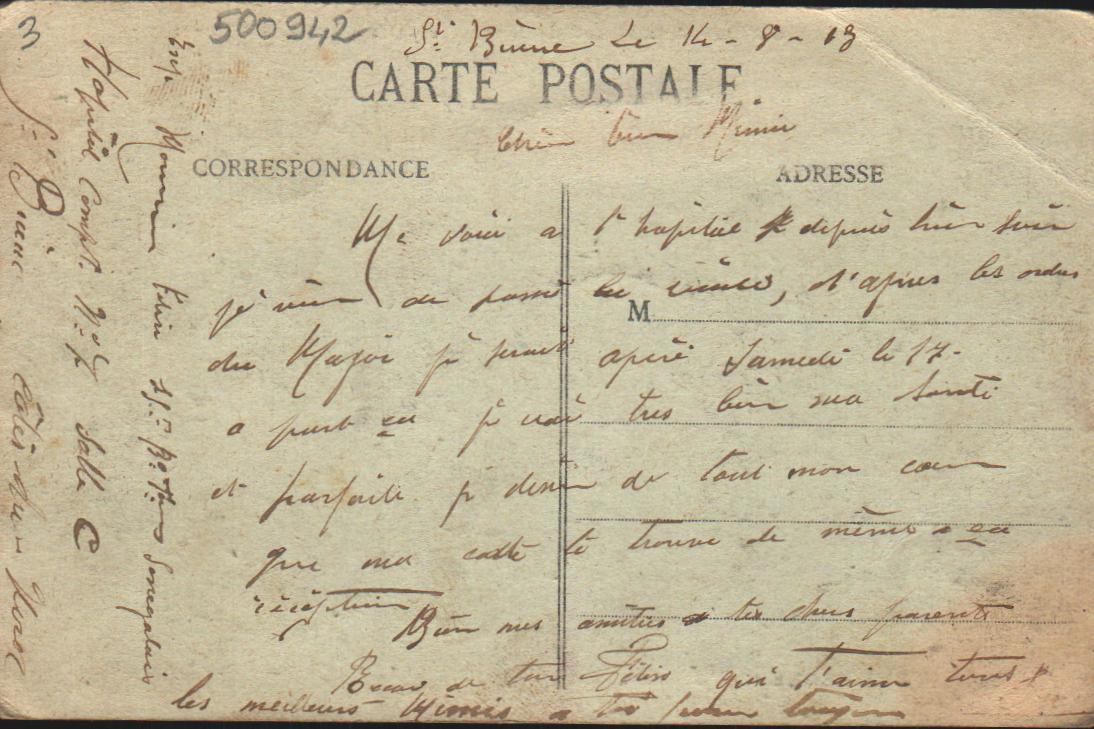 3
500942
St Brieuc Le 14-8-18
CARTE POSTALE
Chère bien Mimie
CORRESPONDANCE
ADRESSE
Me voici a l'hopital depuis hier soir
je vien de passé la visite, d'apres les ordres
M
du Major je serait opéré Samedi le 17-
a part ça je vais tres bien ma santé
et parfaite je désire de tout mon coeur
que ma carte te trouve de même a sa
réception
Bien mes amitiés a tes chers parents
Recoi de ton Félix qui t'aime tous
les meilleurs Mimis a toi pour toujours
Exp Félix 25me Bon Senegalais
Hopital Compl. No Salle C
St Brieuc Côtes du Nord